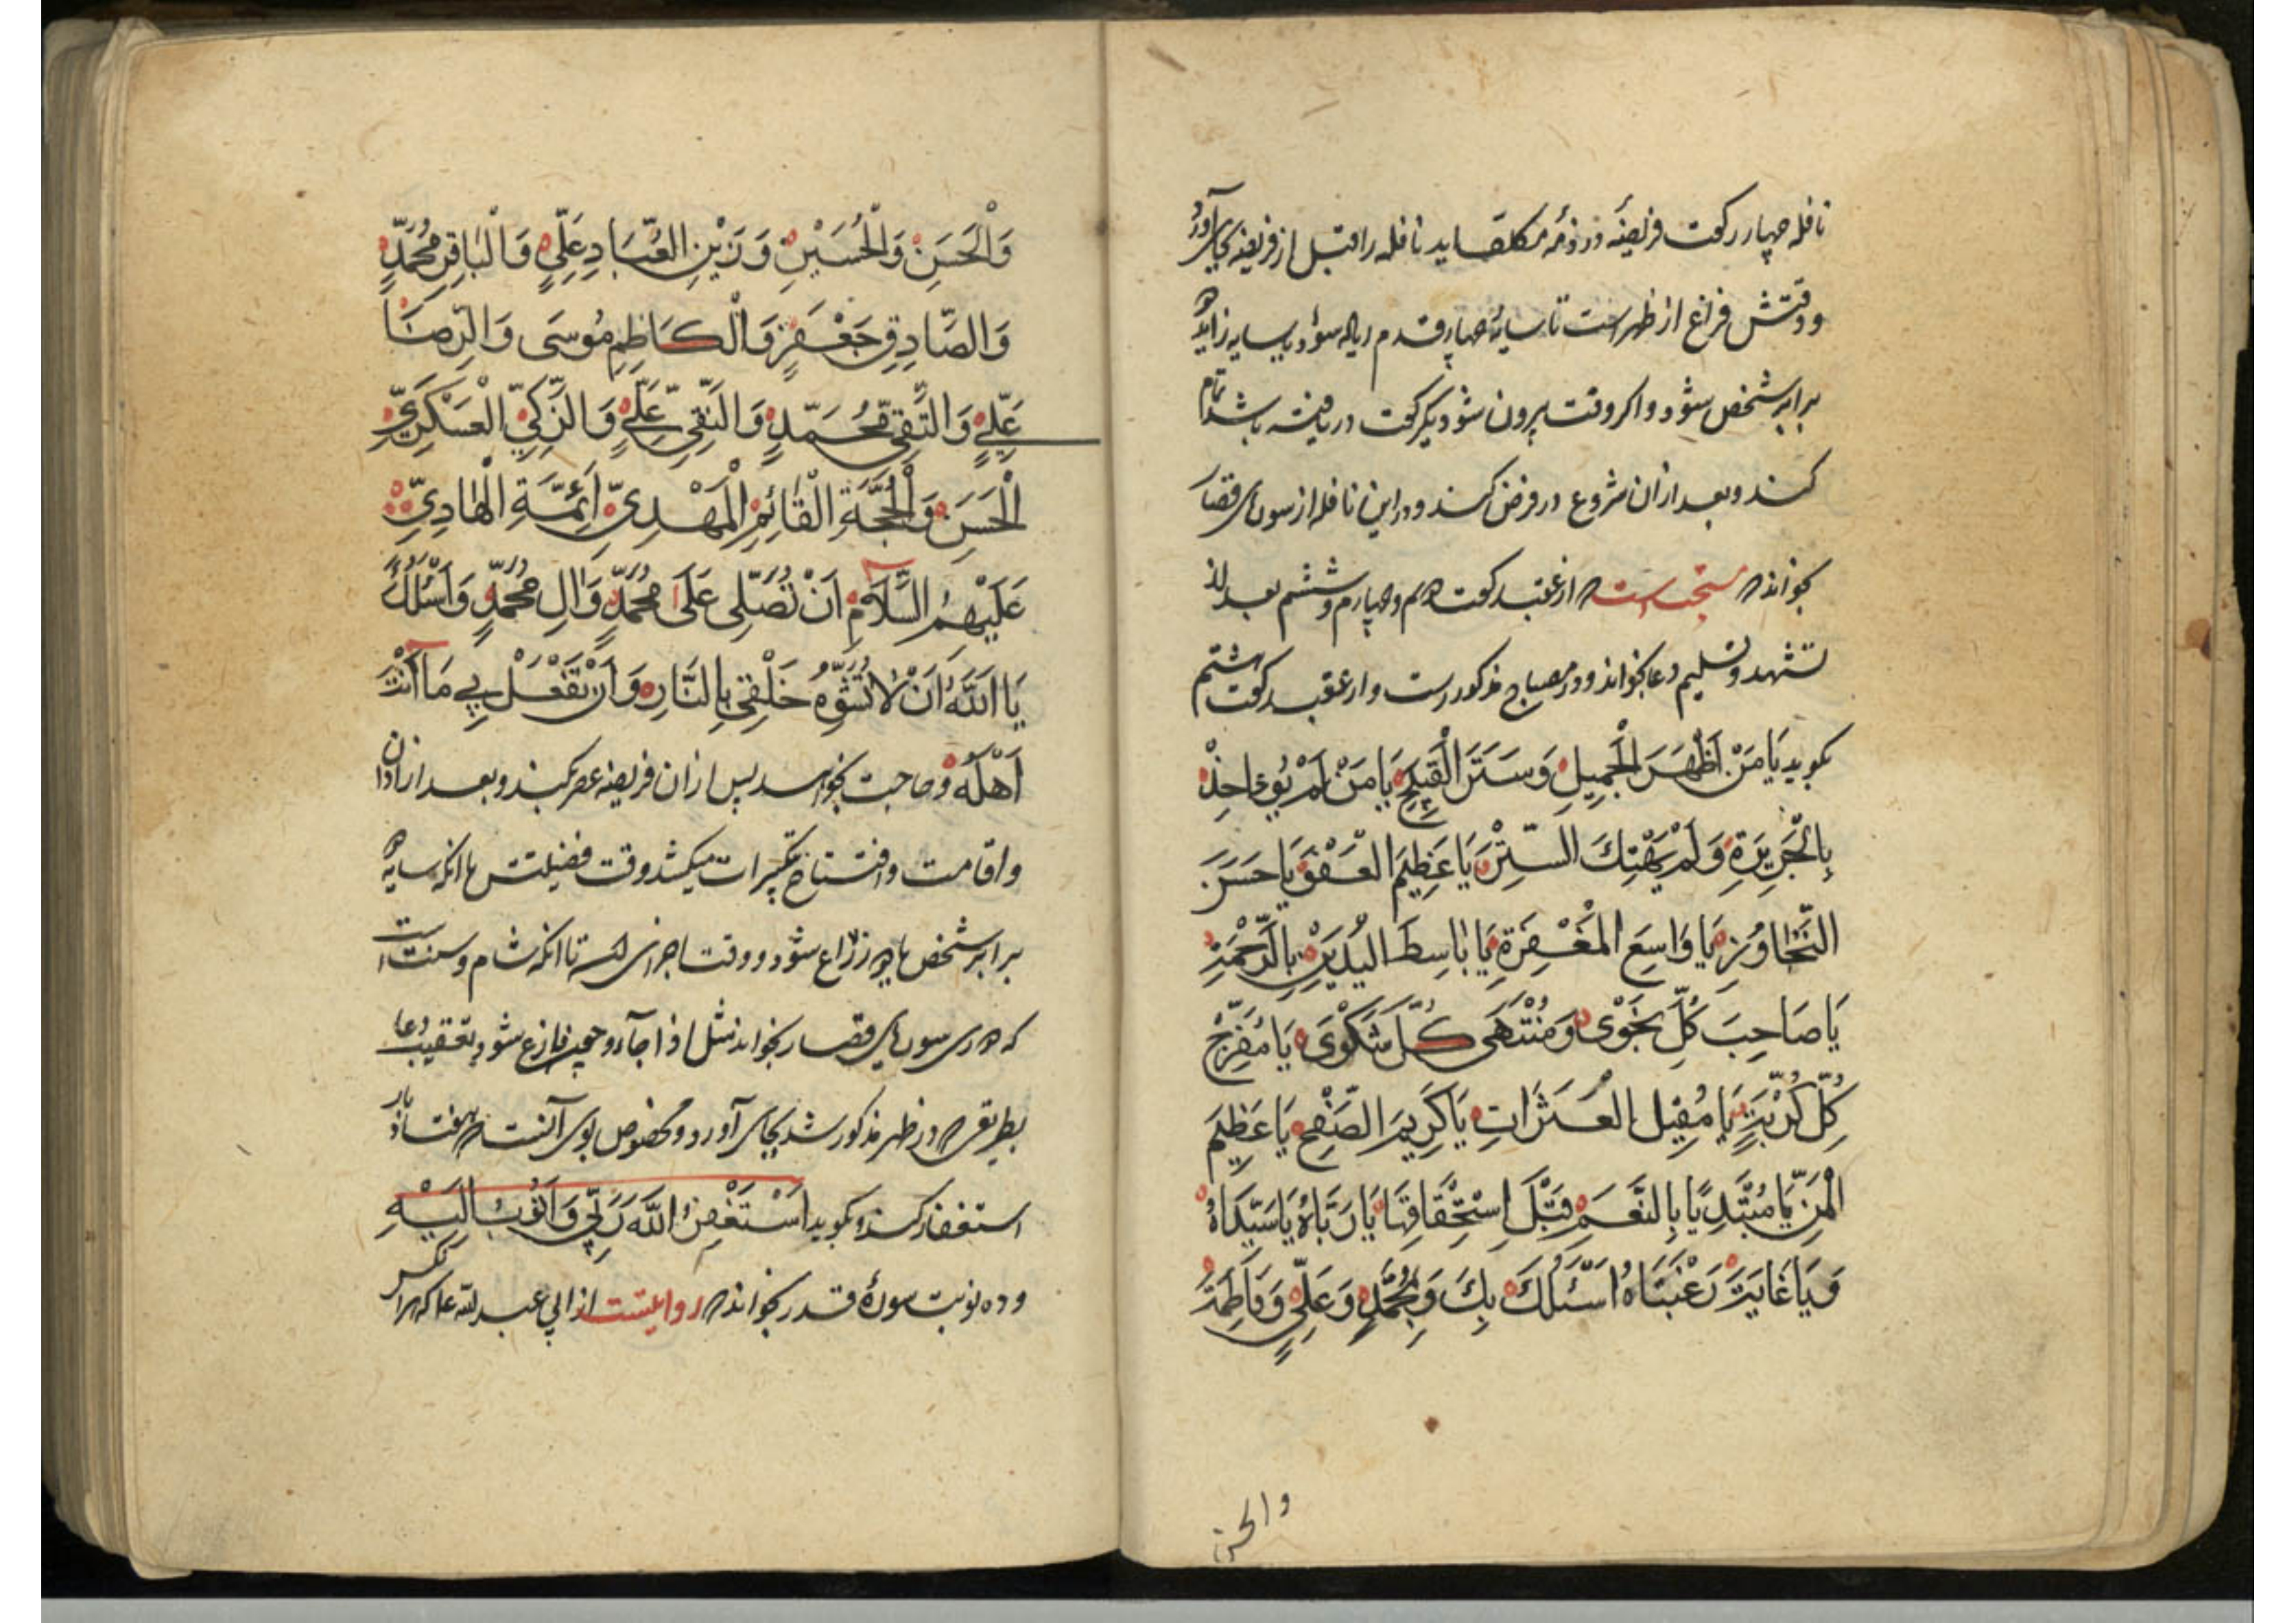 نافله چهار رکعت فریضه در ذمه مکلف آید نافله را قبل از فریضه بجای آورد
و وقتش فراغ از ظهر است تا سایه چهار قدم شود یا سایه زایده
برابر شخص شود و اگر وقت بیرون شود یکرکعت دریافته باشد تمام
کند و بعد از ان شروع در فرض کند و در این نافله از سورهای قصار
بخواند مستحب است از عقب رکعت دوم و چهارم و ششم بعد از
تشهد و تسلیم دعا بخواند و در مصباح مذکور است و از عقب رکعت هشتم
بکوید يَا مَنْ اَظْهَرَ الْجَمِيلَ وَسَتَرَ الْقَبِيحَ يَا مَنْ لَمْ يُؤٰاخِذْ
بِالْجَرِيرَةِ وَلَمْ يَهْتِكَ السِّتْرَ يَا عَظِيمَ الْعَفْوِ يَا حَسَنَ
التَّجٰاوُزِ يَا وَاسِعَ الْمَغْفِرَةِ يَا بٰاسِطَ الْيَدَيْنِ بِالرَّحْمَةِ
يَا صَاحِبَ كُلِّ نَجْوٰى وَمُنْتَهَى كُلِّ شَكْوَى يَا مُفَرِّجَ
كُلِّ كُرْبَةٍ يَا مُقِيلَ الْعَثَرَاتِ يَا كَرِيمَ الصَّفْحِ يَا عَظِيمَ
الْمَنِّ يَا مُبْتَدِيًا بِالنِّعَمِ قَبْلَ اِسْتِحْقَاقِهَا يَا رَبَّاهُ يَا سَيِّدَاهُ
وَيَا غَايَةَ رَغْبَتَاهُ اَسْئَلُكَ بِكَ وَبِمُحَمَّدٍ وَعَلِيٍّ وَفَاطِمَةَ
والحسن
وَالْحَسَنِ وَالْحُسَيْنِ وَزَيْنِ الْعُبَّادِ عَلِيٍّ وَالْبٰاقِرِ مُحَمَّدٍ
وَالصَّادِقِ جَعْفَرٍ وَالْكَاظِمِ مُوسَى وَالرِّضَا
عَلِيٍّ وَالتَّقِيِّ مُحَمَّدٍ وَالنَّقِيِّ عَلِيٍّ وَالزَّكِيِّ الْعَسْكَرِيِّ
الْحَسَنِ وَالْحُجَّةِ الْقٰائِمِ الْمَهْدِيِّ اَئِمَّةِ الْهٰادِيِّ
عَلَيْهِمُ السَّلَامُ اَنْ تُصَلِّى عَلَى مُحَمَّدٍ وَاٰلِ مُحَمَّدٍ وَاَسْئَلُكَ
يَا اَللّٰهُ اَنْ لَا تُشَوِّهَ خَلْقِي بِالنَّارِ وَاَنْ تَفْعَلْ بِي مَا اَنْتَ
اَهْلُهُ و حاجت بخواهد پس از ان فریضه عصر بکند و بعد از اذان
و اقامت و افتتاح تکبیرات میکشد وقت فضیلتش تا انکه سایه
برابر شخص شود و وقت اجزای تا انکه شام و سنت است
که در وی سورهای قصار بخواند مثل اذا جآء و چون فارغ شود بتعقیب دعا
بطریقی که در ظهر مذکور شد بجای آورد و مخصوص بوی آنست که هفتاد بار
استغفار کند و بکوید اَسْتَغْفِرُ اللّٰهَ رَبِّي وَاَتُوبُ اِلَيْهِ
و ده نوبت سورهٔ قدر بخواند روایتست از ابی عبد لله ع که هر انکس